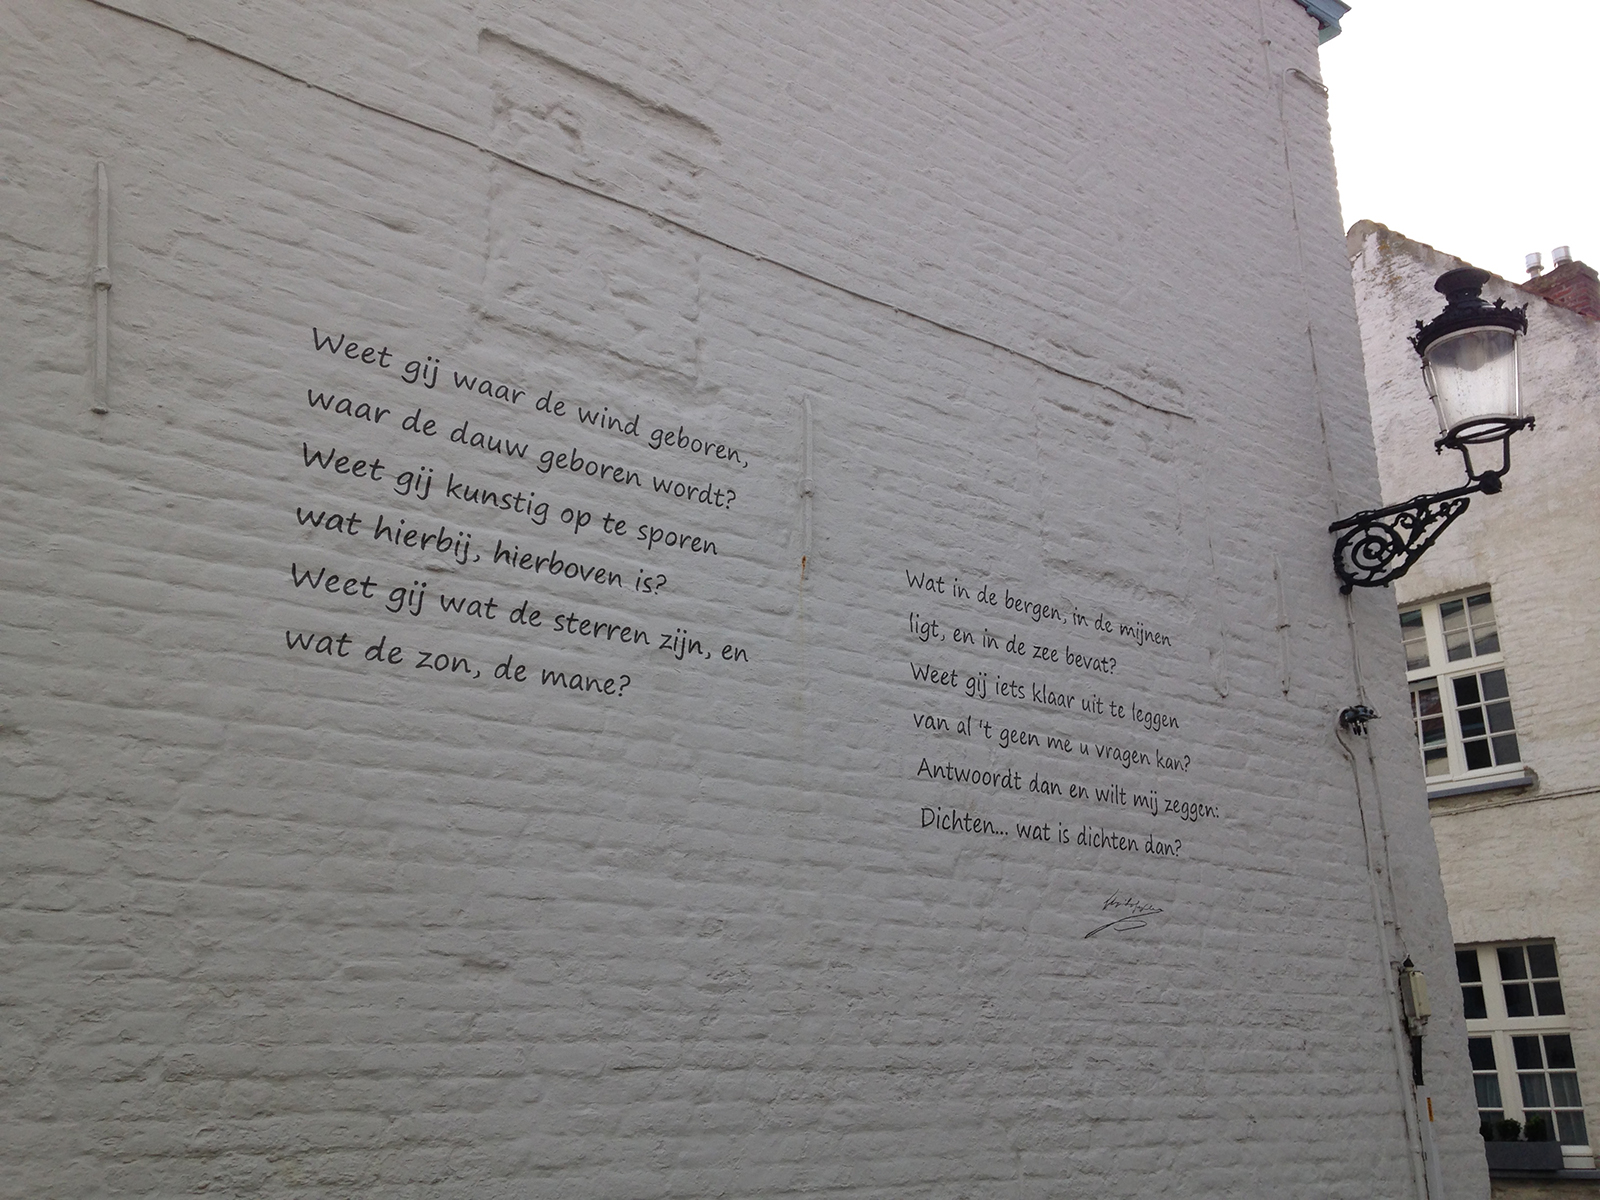 Weet gij waar de wind geboren,
waar de dauw geboren wordt?
Weet gij kunstig op te sporen
wat hierbij, hierboven is?
Weet gij wat de sterren zijn, en
wat de zon, de mane?
Wat in de bergen, in de mijnen
ligt, en in de zee bevat?
Weet gij iets klaar uit te leggen
van al 't geen me u vragen kan?
Antwoordt dan en wilt mij zeggen:
Dichten... wat is dichten dan?